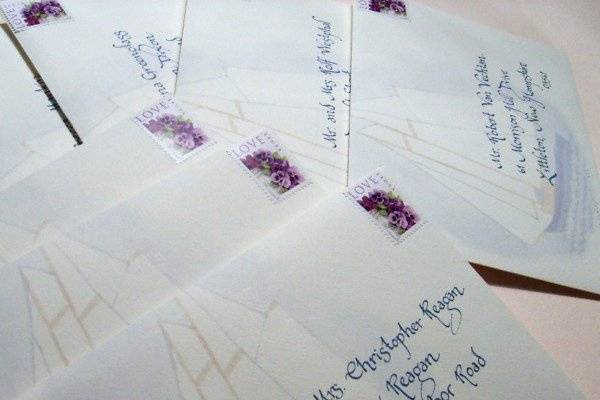 LOVE
LOVE
LOVE
LOVE
LOVE
Mr. and Mrs. Rolf Westphal
Mr. Robert Van Vechten
Morrison Hill Drive
Littleton, New Hampshire
Mrs. Christopher Reagan
Reagan
Road